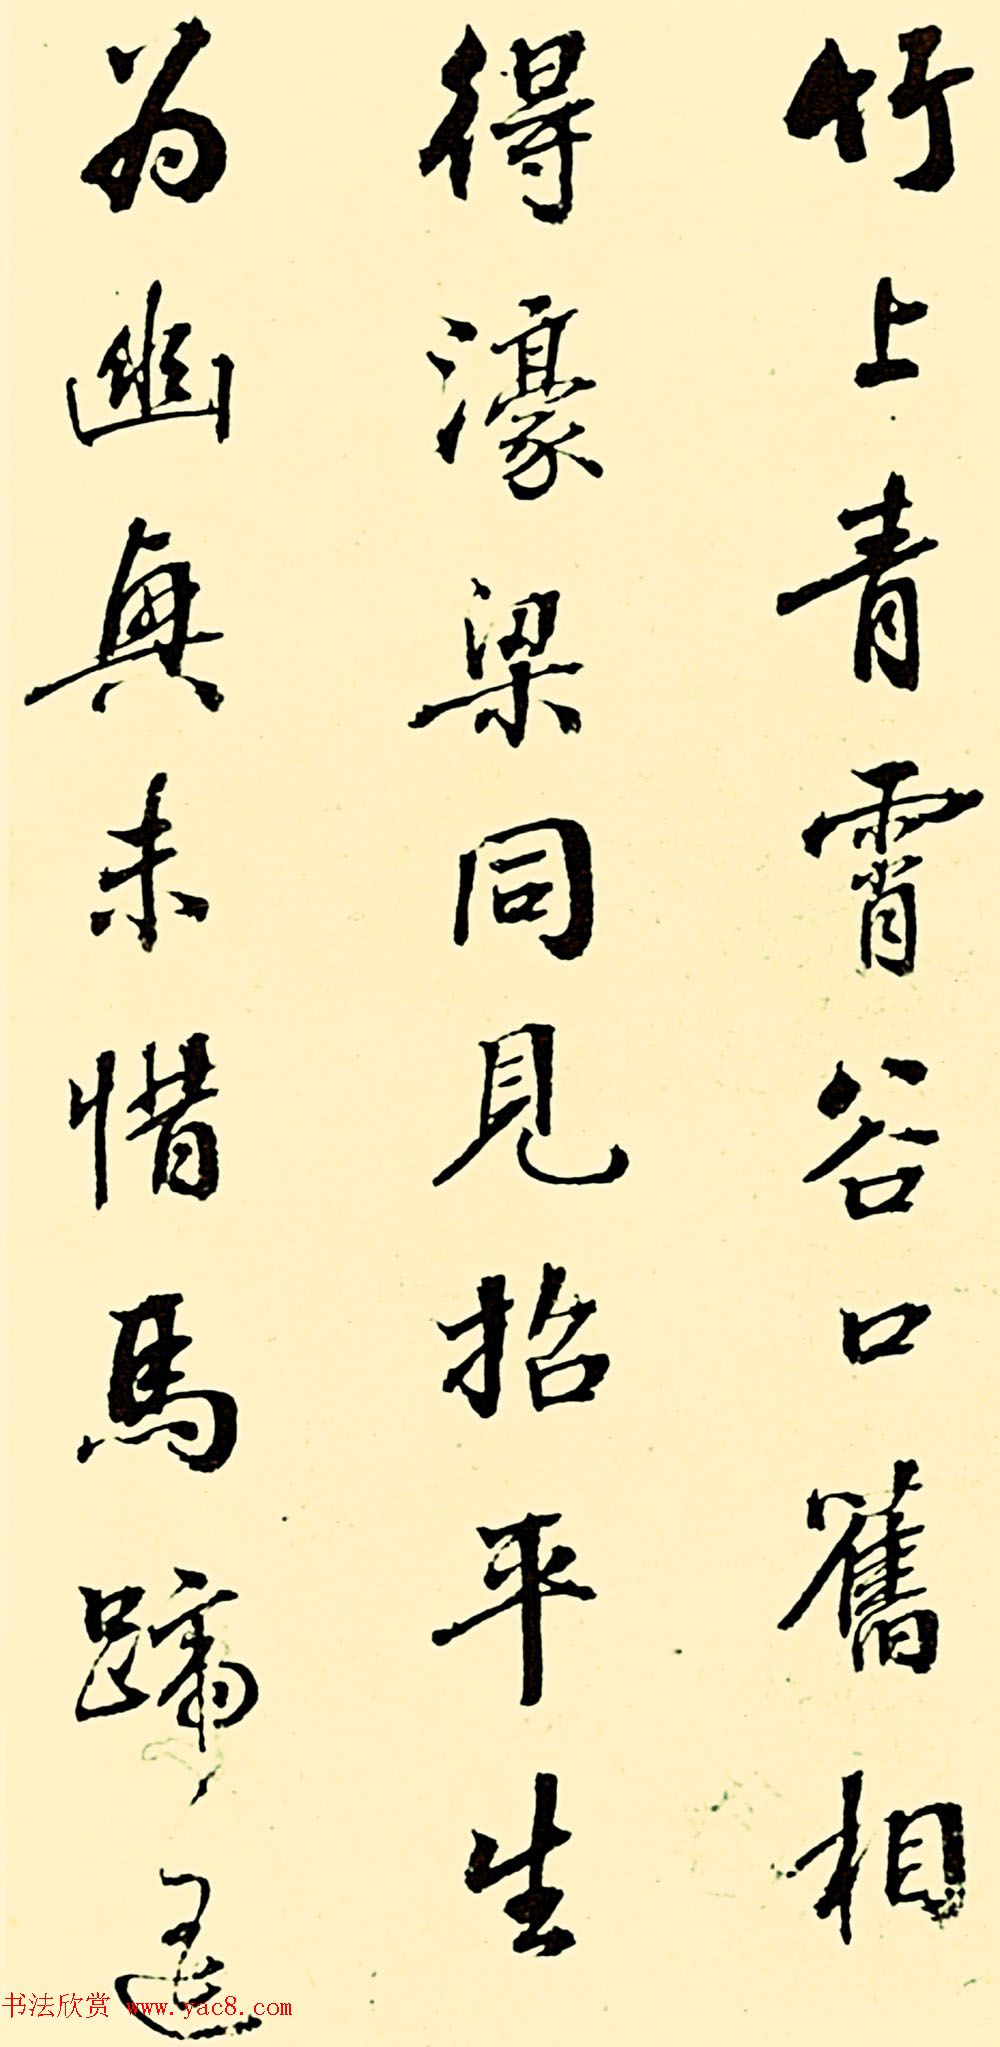 竹上青霄谷口舊相
得濠梁同見招平生
为幽興未惜馬蹄遥
书法欣赏 www.yac8.com